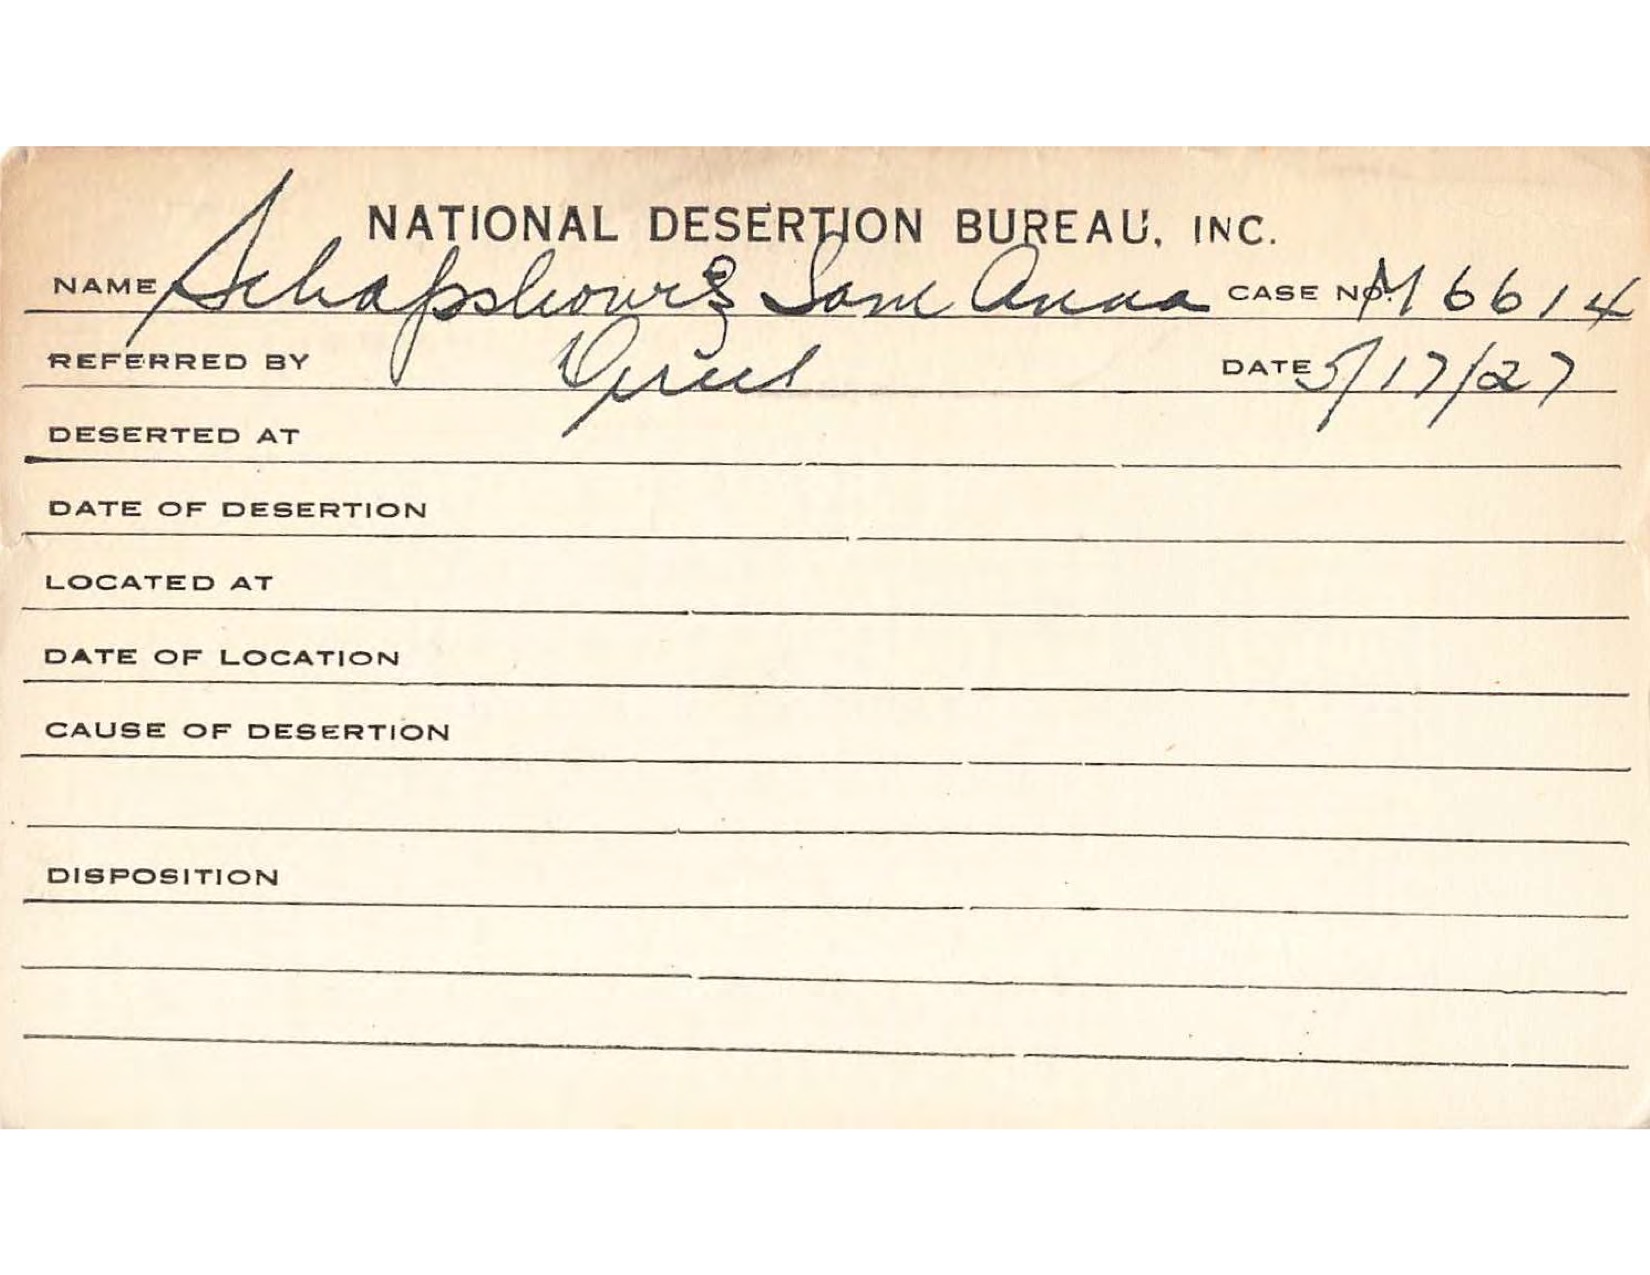 NATIONAL DESERTION BUREAU, INC.
NAME Schapshowiz Sam Anna CASE NO. M 6614
REFERRED BY DATE 5/17/27
DESERTED AT
DATE OF DESERTION
LOCATED AT
DATE OF LOCATION
CAUSE OF DESERTION
DISPOSITION